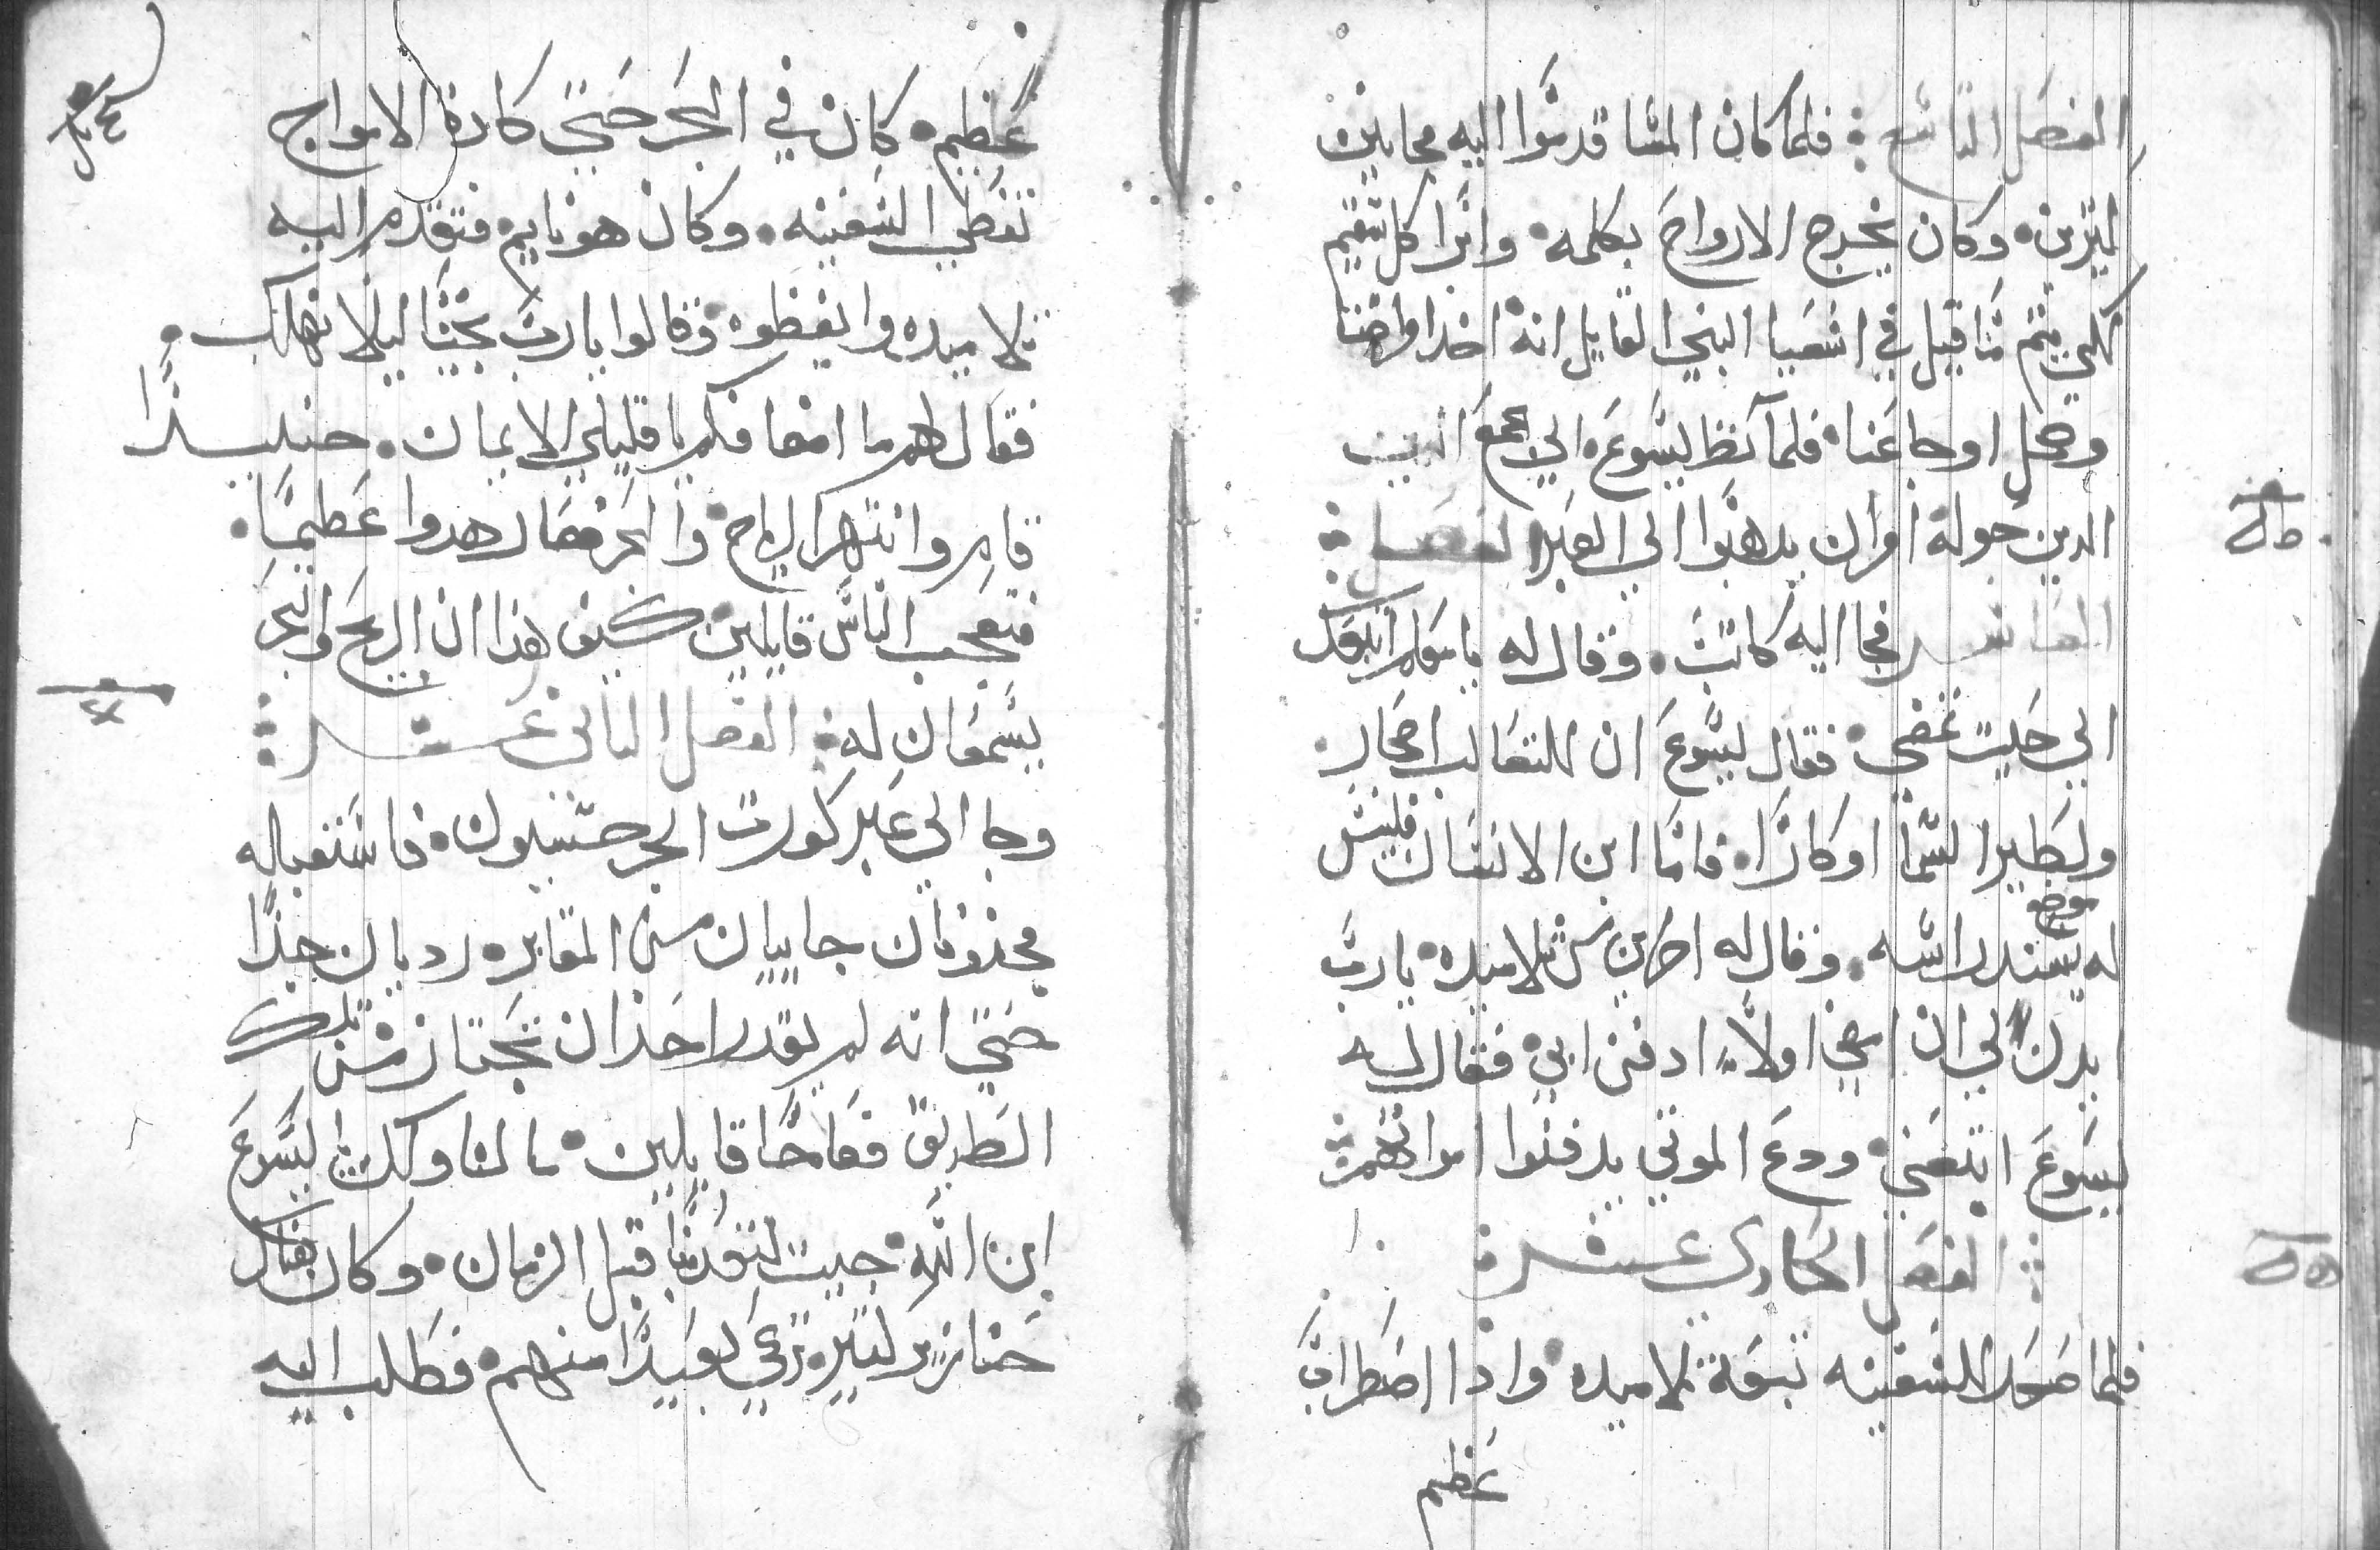 الفصل التاسع فلما كان المسا قدموا اليه مجانين
كثيرين وكان يخرج الارواح بكلمه وابرا كل سقيم
لكي يتم ما قيل في اشعيا النبي القايل انه اخذ امراضنا
وحمل اوجاعنا فلما نظر يسوع الي جمع
الدين حوله امر ان يدهبوا الي العبر الفصل
العاشر فجا اليه كاتب وقال له يا معلم اتبعك
الي حيت تمضي فقال يسوع ان للتعالب اجحار
ولطير السما اوكارا فاما ابن الانسان فليس
موضع
له يسند راسه وقال له اخر من تلاميده يارب
ايدن لي ان امضي اولا ادفن ابي فقال له
يسوع اتبعني ودع الموتي يدفنوا امواتهم
الفصل الحادي عشر
فلما صعد السفينه تبعه تلاميده وادا اضطراب
عظيم
عظيم كان في البحر حتي كادة الامواج
تغطي السفينه وكان هو نايم فتقدم اليه
تلاميده وايقظوه وقالوا يارب نجنا ليلا نهلك
فقال لهم ما اضعافكم يا قليلي الايمان حنيدا
قام وانتهر الرياح والبحر فصار هدوا عظيما
فتعجب الناس قايلين كيف هذا ان الريح والبحر
يسمعان له الفصل التاني عشر
وجا الي عبر كورت الجرجسيون فاستقباله
مجنونان جاييان من المقابر رديان جدا
حتي انه لم يقدر احد ان يجتاز من تلك
الطريق فصاحا قايلين ما لنا ولك يا يسوع
ابن الله جيت لتعدبنا قبل الزمان وكان هناك
خنازير كتيره ترعي بعيدا منهم فطلب اليه